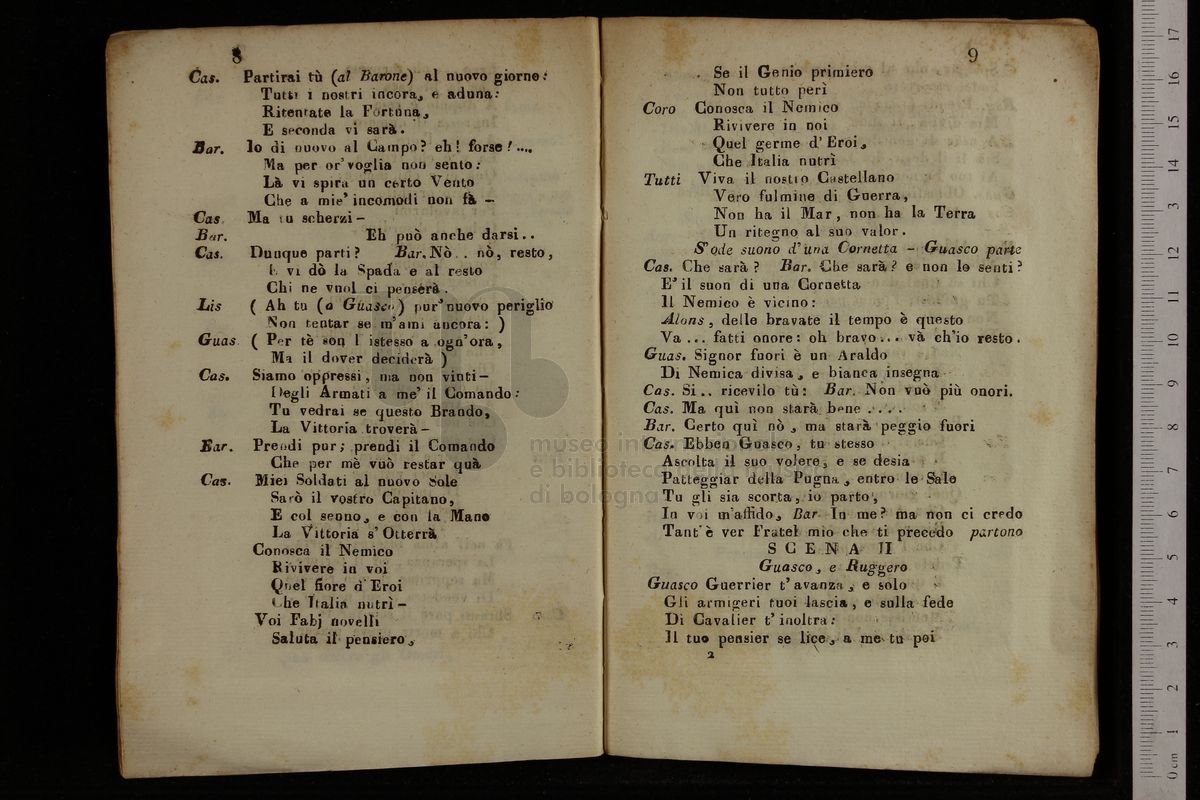 8
Cas. Partirai tù (al Barone) al nuovo giorno:
Tutti i nostri incora, e aduna:
Ritentate la Fortuna,
E seconda vi sarà.
Bar. Io di nuovo al Campo? eh! forse!....
Ma per or' voglia non sento:
Là vi spira un certo Vento
Che a mie' incomodi non fà –
Cas. Ma tu scherzi –
Bar. Eh può anche darsi..
Cas. Dunque parti? Bar. Nò . . nò, resto,
E vi dò la Spada e al resto
Chi ne vuol ci penserà.
Lis ( Ah tu (a Guasco) pur' nuovo periglio
Non tentar se m'ami ancora: )
Guas. ( Per tè son l istesso a ogn'ora,
Ma il dover deciderà )
Cas. Siamo oppressi, ma non vinti –
Degli Armati a me' il Comando:
Tu vedrai se questo Brando,
La Vittoria troverà –
Bar. Prendi pur; prendi il Comando
Che per mè vuò restar quà
Cas. Miei Soldati al nuovo Sole
Sarò il vostro Capitano,
E col senno, e con la Mano
La Vittoria s'Otterrà
Conosca il Nemico
Rivivere in voi
Quel fiore d'Eroi
Che Italia nutrì –
Voi Fabj novelli
Saluta il pensiero,
9
Se il Genio primiero
Non tutto perì
Coro Conosca il Nemico
Rivivere in noi
Quel germe d'Eroi,
Che Italia nutrì
Tutti Viva il nostro Castellano
Vero fulmine di Guerra,
Non ha il Mar, non ha la Terra
Un ritegno al suo valor.
S'ode suono d'una Cornetta – Guasco parte
Cas. Che sarà? Bar. Che sarà? e non lo senti?
E' il suon di una Cornetta
Il Nemico è vicino:
Alons, delle bravate il tempo è questo
Va... fatti onore: oh bravo... và ch'io resto.
Guas. Signor fuori è un Araldo
Di Nemica divisa, e bianca insegna
Cas. Si.. ricevilo tù: Bar. Non vuò più onori.
Cas. Ma quì non starà bene . . . .
Bar. Certo quì nò, ma starà peggio fuori
Cas. Ebben Guasco, tu stesso
Ascolta il suo volere, e se desia
Patteggiar della Pugna, entro le Sale
Tu gli sia scorta, io parto,
In voi m'affido, Bar. In me? ma non ci credo
Tant'è ver Fratel mio che ti precedo partono
SCENA II
Guasco, e Ruggero
Guasco Guerrier t'avanza, e solo
Gli armigeri tuoi lascia, e sulla fede
Di Cavalier t'inoltra:
Il tuo pensier se lice, a me tu poi
2